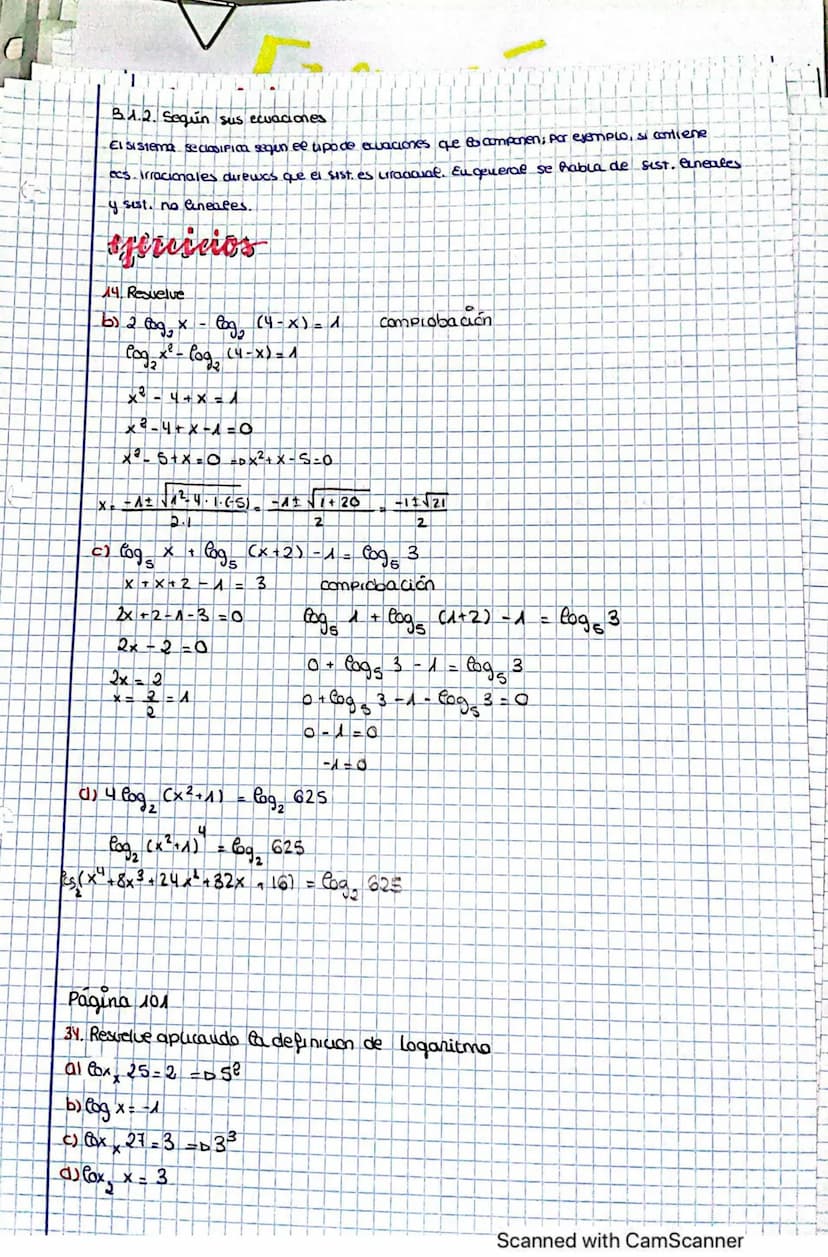 3.1.2. Según sus ecuaciones
El sistema se clasifica según el tipo de ecuaciones que lo componen; por ejemplo, si contiene
ecs. irracionales diremos que el sist. es irracional. En general se habla de sist. lineales
y sist. no lineales.
ejercicios
14. Resuelve
b) 2 log₂ x - log₂ (4-x) = 1 comprobación
log₂ x² - log₂ (4-x) = 1
x² - 4 + x = 1
x² - 4 + x - 1 = 0
x² - 5 + x = 0 => x² + x - 5 = 0
x = (-1 ± √(1² - 4 · 1 · (-5))) / (2·1) = (-1 ± √(1 + 20)) / 2 = (-1 ± √21) / 2
c) log₅ x + log₅ (x+2) - 1 = log₅ 3
x + x + 2 - 1 = 3 comprobación
2x + 2 - 1 - 3 = 0 log₅ 1 + log₅ (1+2) - 1 = log₅ 3
2x - 2 = 0
0 + log₅ 3 - 1 = log₅ 3
2x = 2
x = 2/2 = 1 0 + log₅ 3 - 1 - log₅ 3 = 0
0 - 1 = 0
-1 = 0
d) 4 log₂ (x² + 1) = log₂ 625
log₂ (x² + 1)⁴ = log₂ 625
(x⁴ + 8x³ + 24x² + 32x + 16) = log₂ 625
Página 101
34. Resuelve aplicando la definicion de logaritmo
a) logₓ 25 = 2 => 5²
b) log x = -1
c) logₓ 27 = 3 => 3³
d) log₂ x = 3
Scanned with CamScanner